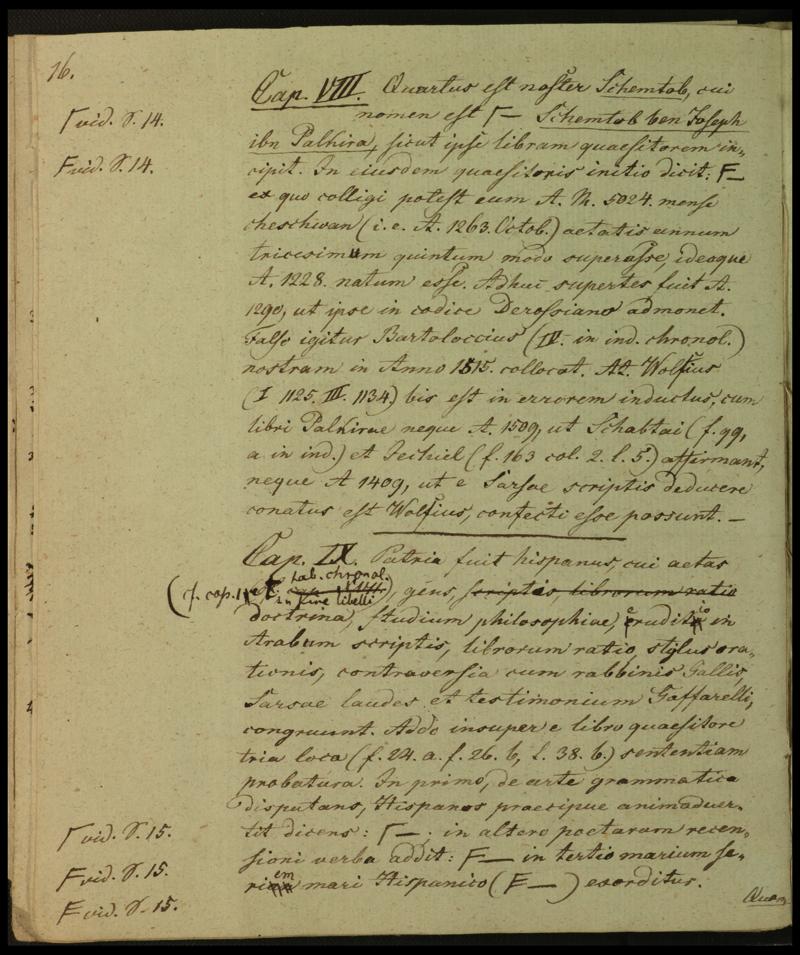 16.
Cap. VIII. Quartus est noster Schemtob, cui
Γ vid. S. 14.
nomen est Γ— Schemtob ben Joseph
ibn Palkira, sicut ipse librum quaesitorem in-
F vid. S. 14.
cipit. In eiusdem quaesitoris initio dicit: F—
ex quo colligi potest eum A. M. 5024. mense
cheschwan (i. e. A. 1263. Octob.) aetatis annum
tricesimum quintum modo superasse, ideoque
A. 1228. natum esse. Adhuc supertes fuit A.
1290, ut ipse in codice Derossiano admonet.
Falso igitur Bartoloccius (IV. in ind. chronol.)
nostram in Anno 1515. collocat. At Wolfius
(I 1125. III. 1134.) bis est in errorem inductus, cum
libri Palkirae neque A. 1509, ut Schabtai (f. 99,
a. in ind.) et Jechiel (f. 163 col. 2. l. 5.) affirmant,
neque A 1409, ut e Sarsae scriptis deducere
conatus est Wolfius, confecti esse possunt. —
Cap. IX. Patria fuit hispanus, cui aetas
(cf. cap. 1 et tab. chronol.
in fine libelli), gens, scriptis, librorum ratio
doctrina, studium philosophiae, eruditio in
Arabum scriptis, librorum ratio, stylus ora-
tionis, controversia cum rabbinis Gallis,
Sarsae laudes et testimonium Gaffarelli,
congruunt. Addo insuper e libro quaesitore
tria loca (f. 24. a. f. 26. b, f. 38. b.) sententiam
probatura. In primo, de arte grammatica
disputans, Hispanos praecipue animaduer-
Γ vid. S. 15.
tit dicens: Γ—; in altero poetarum recen-
F vid. S. 15.
sioni verba addit: F— in tertio marium se-
F vid. S. 15.
riem mari Hispanico (F—) exorditur.
Quem